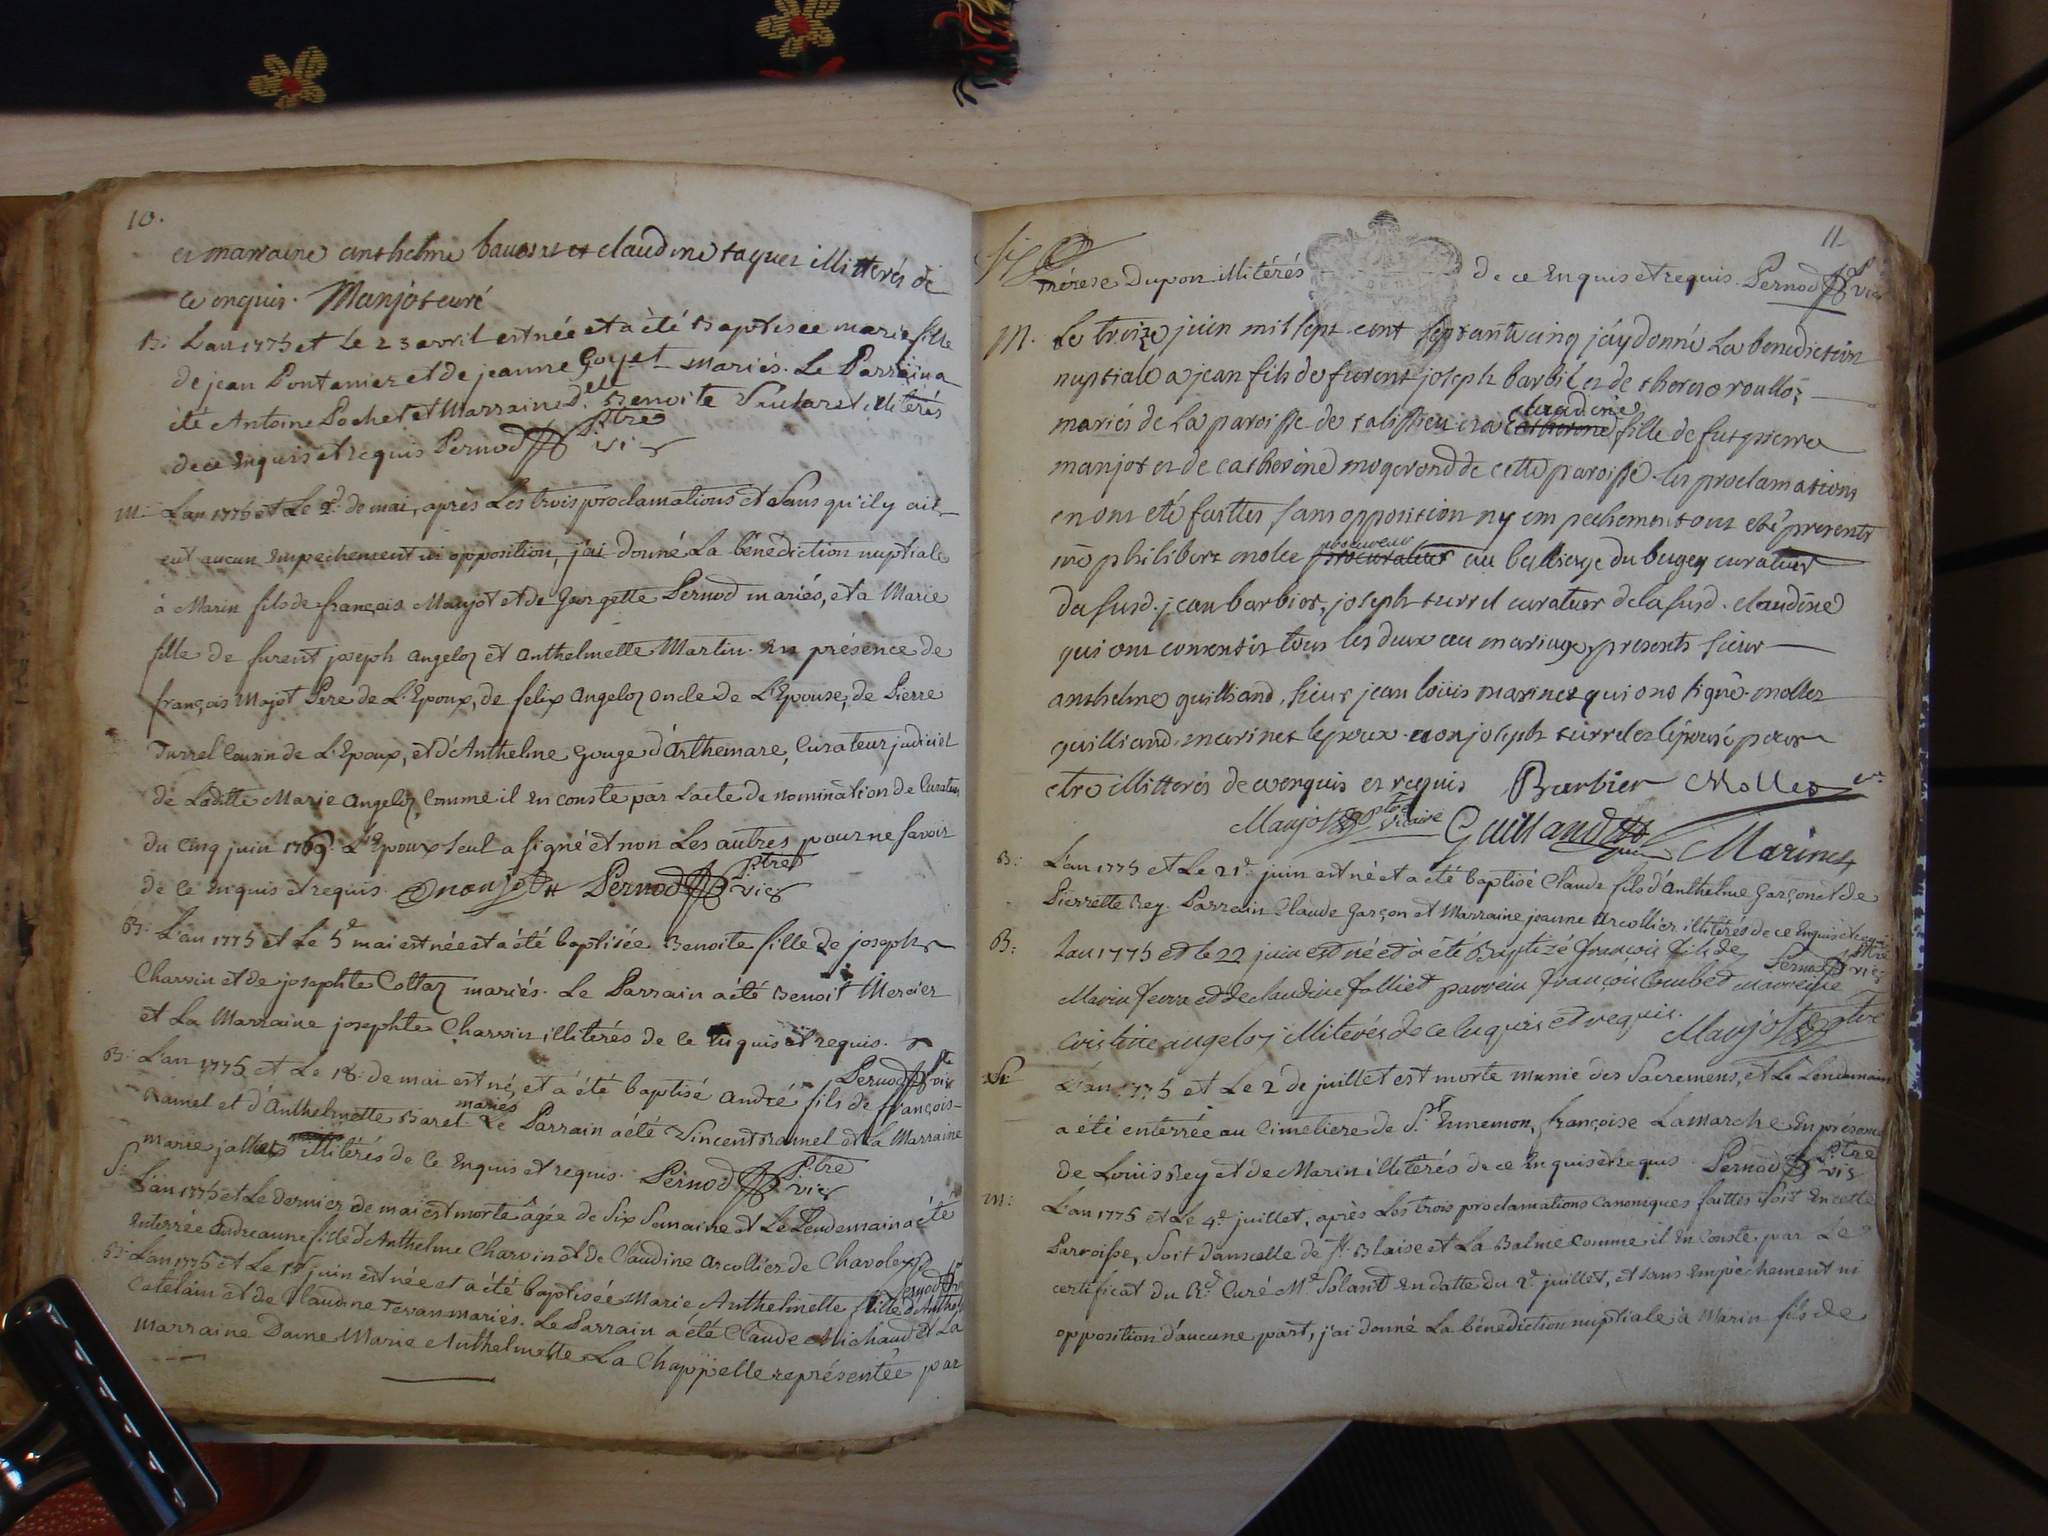 10.
et marraine anthelme et claudine taquet illitterés de
ce enquis. Manjot curé
B: L'an 1775 et Le 23 avril est née et a été Baptisée marie fille
de jean Pontanier et de jeanne Goyet mariés. Le Parrain a
été Antoine Pochet et Marraine d.elle Benoite illiterés
de ce Enquis et requis Pernod Ptre vic
m: L'an 1775 et Le 2.d de mai, après Les trois proclamations et Sans qu'il y ait
eut aucun Empechement ni opposition, j'ai donné La bénédiction nuptiale
à Marin fils de françois Manjot et de Georgette Pernod mariés, et a Marie
fille de furent joseph Angeloz et Anthelmette Martin. En présence de
françois Majot Pere de L'Epoux, de felix Angeloz oncle de L'Epouse, de Pierre
Turrel Cousin de L'Epoux, et d'Anthelme Gouge d'Arthemare, Curateur judiciel
de Laditte Marie Angeloz Comme il en conste par Lacte de nomination de Curateur
du Cinq juin 1769. L'Epoux seul a signé et non Les autres pour ne savoir
de ce Enquis et requis. manjot Pernod Ptre vic
B: L'an 1775 et Le 5.e mai est née et a été baptisée Benoite fille de joseph
Charvin et de josephte Cottaz mariés. Le Parrain a été Benoit Mercier
et La Marraine josephte Charvin illiterés de ce Enquis et requis.
Pernod Ptre vic
B: L'an 1775 et Le 18: de mai est né, et a été baptisé André fils de françois
Ramel et d'Anthelmette Baret mariés Le Parrain a été Vincent Ramel et La Marraine
marie illitérés de ce Enquis et requis. Pernod Ptre vic
S: L'an 1775 et Le dernier de mai est morte âgée de Six Semaine et Le Lendemain a été
Enterrée Andreanne fille d'Anthelme Charvin et de Claudine Arcollier de Chavoley
Pernod Ptre
B: L'an 1775 et Le juin est née et a été baptisée Marie Anthelmette fille d'
Catelain et de Claudine Tevan mariés. Le Parrain a été Claude Michaud et La
Marraine Dame Marie Anthelmette La Chappelle représentée par
11
Thérese Dupon illitérés de ce Enquis et requis. Pernod Ptre vic
M. Le treize juin mil sept cent septante cinq j'ay donné La benediction
nuptiale a jean fils de furent joseph barbier et de therese
mariés de la paroisse de talissieu et a catherine claudine fille de fut pierre
manjot et de catherine mogerond de cette paroisse. les proclamations
en ont eté faittes sans opposition ny empechement ont eté presents
me philibert molle procurateur procureur au bailliage du bugey curateur
du susd. jean barbier, joseph turrel curateur de la susd. claudine
qui ont consentis tous les deux au mariage, presents sieur
anthelme guilliand, sieur jean louis marinet qui ont signé. mollet
guilliand, marinet lepoux non joseph turrel et l'epouse pour
etre illitterés de ce enquis et requis Barbier Mollet
Manjot ptre vicaire Guilliand Marinet
B: L'an 1775 et Le 21.e juin est né et a été baptisé Claude fils d'Anthelme Garçon et de
Pierrette Rey. Parrain Claude Garçon et Marraine jeanne Arcollier illitérés de ce Enquis et requis
Pernod Ptre vic
B: L'an 1775 et le 22 juin est né et a été Baptizé françois fils de
Marin ferra et de claudine folliet parrein françois Combet marreine
Cristine angeloz illiterés de ce Enquis et requis. Manjot ptre
S: L'an 1775 et Le 2.e de juillet est morte munie des Sacremens, et Le Lendemain
a été enterrée au Cimetiere de S.t Ennemon, françoise Lamarche En présence
de Louis Rey et de Marin illetérés de ce Enquis et requis Pernod Ptre vic
m: L'an 1775 et Le 4.e juillet, après Les trois proclamations Canoniques faittes soit En cette
Parroisse, soit dans celle de S.t Blaise et La Balme comme il en Conste par Le
certificat du R.d Curé M.e Solant en datte du 2.e juillet, et sans Empêchement ni
opposition d'aucune part, j'ai donné La bénédiction nuptiale à Marin fils de